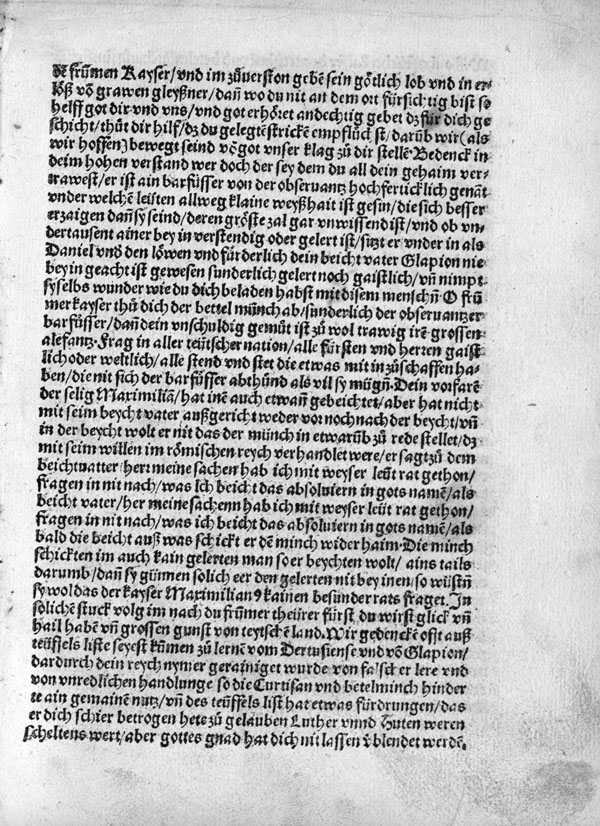 dẽ frũmen Kayser/vnd im zůuerston gebẽ sein gôtlich lob vnd in er⸗
lôß võ grawen gleyßner/dañ wo du nit an dem ort fürsichtig bist so
helff got dir vnd vns/vnd got erhôtet andechtig gebet dz für dich ge
schicht/thüt dir hilf/dz du gelegtẽ stricken empflück st/darũb wir (als
wir hoffen) bewegt seind võ got vnser klag zů dir stellẽ. Bedenck in
deim hohen verstand wer doch der sey dem du all dein gehaim ver⸗
trawest/er ist ain barfüsser von der obseruantz hochferticklich genãt
vnder welchẽ leüten allweg klaine weyßhait ist gesin/die sich besser
erzaigen dañ sy seind/deren grôste zal gar vnwissend ist/vnd ob vn⸗
dertausent ainer bey in verstendig oder gelert ist/sitzt er vnder in als
Daniel vnd den lôwen vnd fürderlich dein beicht vater Glapion nie
bey in geacht ist gewesen sunderlich gelert noch gaistlich/vñ nimpt
sy selbs wunder wie du dich beladen habst mit disem menschñ O frũ
mer kayser thů dich der bettel münch ab/sunderlich der obseruantzer
barfüsser/dañ dein vnschuldig gemüt ist zů wol trawig irẽ grossen
alefantz. Frag in aller teütscher nation/alle fürsten vnd herren gaist
lich oder weltlich/alle stend vnd stet die etwas mit in zůschaffen ha⸗
ben/die nit sich der barfüsser abthünd als vil sy mügñ. Dein vorfarẽ
der selig Maximiliã/hat inẽ auch etwañ gebeichtet/aber hat nicht
mit seim beycht vater außgericht weder vor noch nach der beycht/vñ
in der beycht wolt er nit das der münch in etwarũb zů rede stellet/dz
mit seim willen im rômischen reych verhandlet were/er sagt zů dem
beichtuatter herr meine sachen hab ich mit weyser leüt rat gethon/
fragen in nit nach/was Ich beicht das absoluiern in gots namẽ/als
beicht vater/her meine sachenn hab ich mit weyser leüt rat gethon/
fragen in nit nach/was ich beicht das absoluiern in gots namẽ/als
bald die beicht auß was schickt er dẽ minch wider haim. Die minch
schickten im auch kain gelerten man so er beychten wolt/ ains tails
darumb/dañ sy günnen solich eer den gelerten nit bey inen/so wüstñ
sy wol das der kayser Maximilianꝰ kainen besunder rats fraget. In
solichẽ stuck volg im nach du frũmer theürer fürst/du wirst glick vñ
hail habẽ vñ grossen gunst von teytschẽ land. Wir gedenckẽ offt auß
teüffels liste seyest kũmen zů lernẽ vom Dertusiense vnd võ Glapion/
dardurch dein reych nymer gerainiget wurde von falscher lere vnd
von vnredlichen handlunge so die Curtisan vnd betelminch hinder
te ain gemainẽ nutz/vñ des teüffels list hat etwas fürdrungen/das
er dich schier betrogen hete zů gelauben Luther vnnd Huten weren
scheltens wert/aber gottes gnad hat dich nit lassen ṽblendet werdẽ.